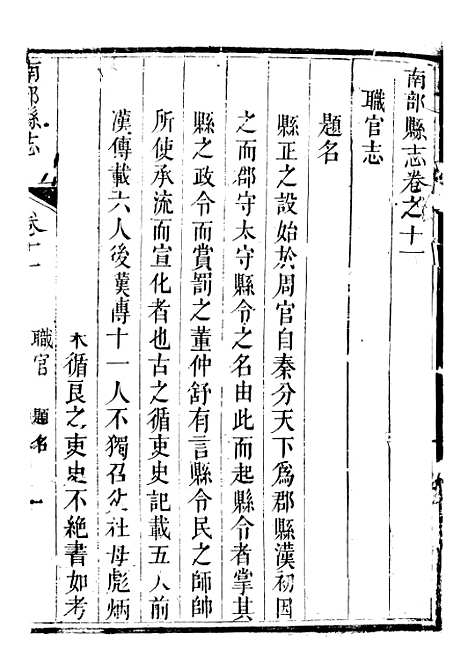 南部縣志卷之十一
職官志
題名
縣正之設始於周官自秦分天下爲郡縣漢初因
之而郡守太守縣令之名由此而起縣令者掌其
縣之政令而賞罰之董仲舒有言縣令民之師帥
所使承流而宣化者也古之循吏史記載五人前
漢傳載六人後漢傳十一人不獨召父杜母彪炳
循良之吏史不絕書如考
南部縣志
卷十一
職官 題名
一